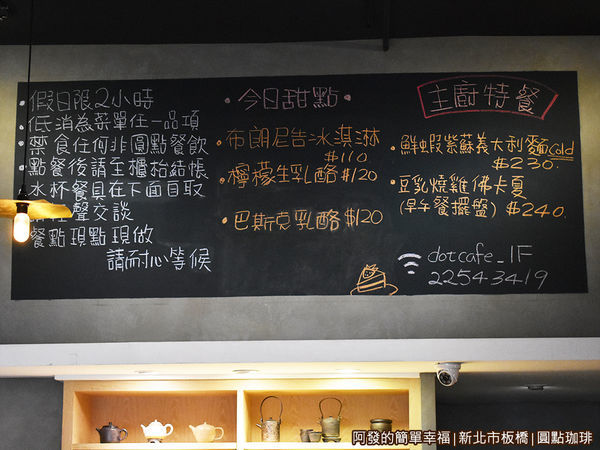 假日限2小時
低消為菜單任一品項
禁食任何非圓點餐飲
點餐後請至櫃抬結帳
水杯餐具在下面自取
聲交談
餐點現點現做
請耐心等候
•今日甜點•
•布朗尼佐冰淇淋
$110
•檸檬生乳酪$120
•巴斯克乳酪$120
主廚特餐
•鮮蝦紫蘇義大利麵cold
$230.
•豆乳燒雞佛卡夏
(早午餐擺盤) $240.
dotcafe_1F
22543419
阿發的簡單幸福|新北市板橋|圓點珈琲